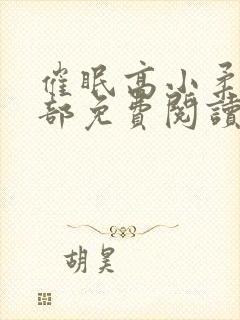 催眠高小柔
部免費閱讀
胡昊